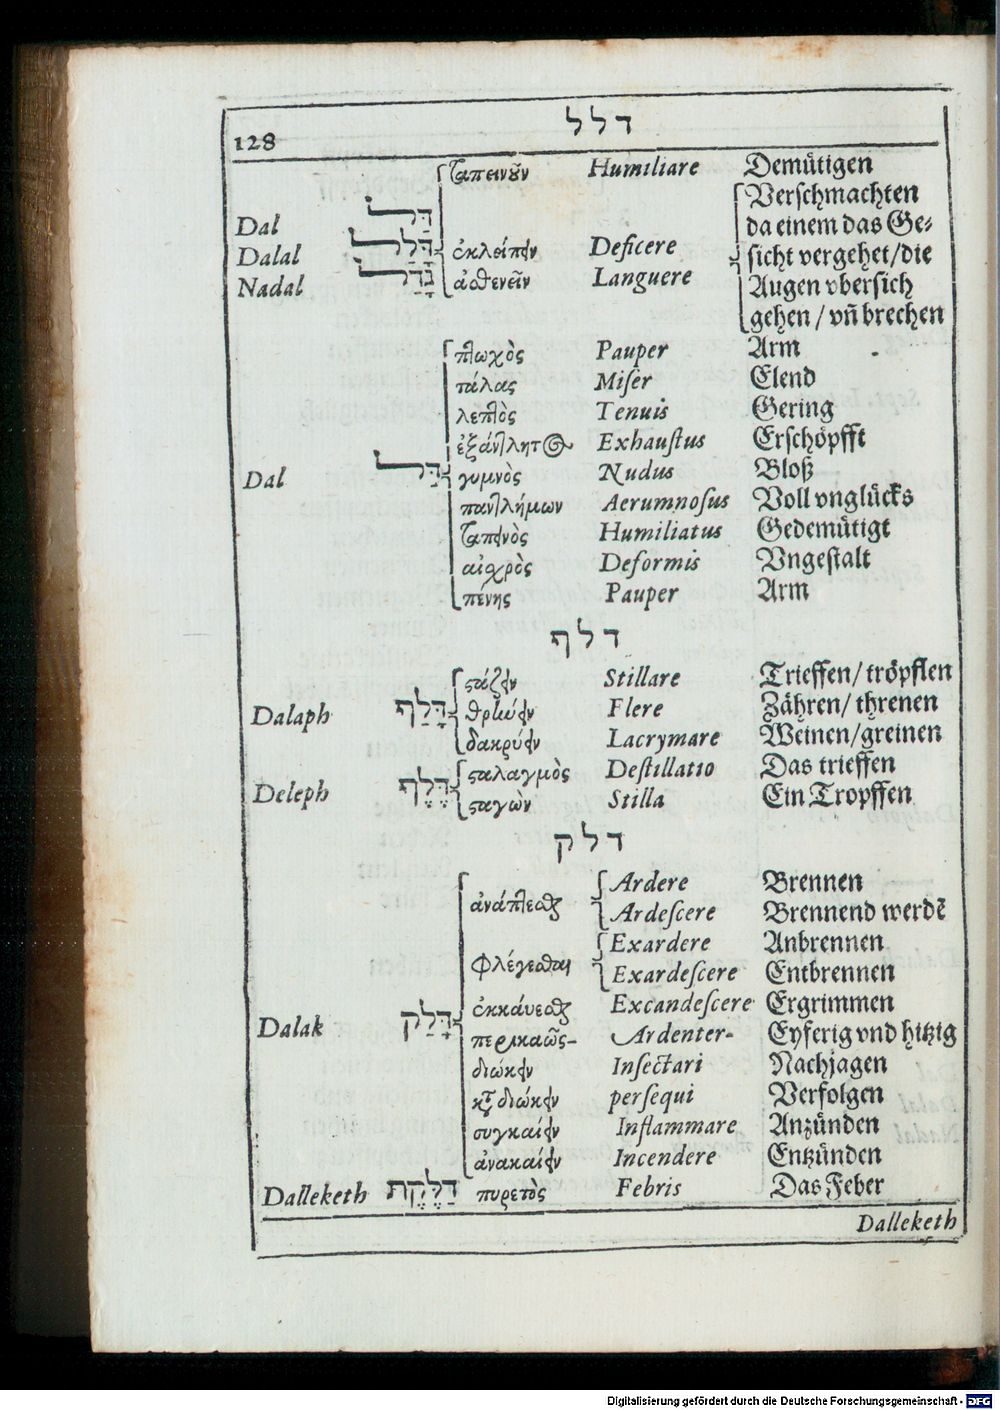 128 דלל
ταπεινοῦν Humiliare Demütigen
Verschmachten
Dal דַּל da einem das Ge⸗
Dalal דָּלַל ἐκλείπειν Deficere sicht vergehet/die
Nadal נָדַל ἀσθενεῖν Languere Augen vbersich
gehen / vñ brechen
πτωχὸς Pauper Arm
τάλας Miſer Elend
λεπτὸς Tenuis Gering
ἐξάντλητος Exhauſtus Erschöpfft
Dal דַּל γυμνὸς Nudus Bloß
παντλήμων Aerumnoſus Voll vnglücks
ταπεινὸς Humiliatus Gedemütigt
αἰσχρὸς Deformis Vngestalt
πένης Pauper Arm
דלף
στάζειν Stillare Trieffen/ tröpflen
Dalaph דָּלַף θρηνεῖν Flere Zähren/ threnen
δακρύειν Lacrymare Weinen/greinen
σταλαγμὸς Deſtillatio Das trieffen
Deleph דֶּלֶף σταγὼν Stilla Ein Tropffen
דלק
ἀνάπτεσθαι Ardere Brennen
Ardeſcere Brennend werdē
φλέγεσθαι Exardere Anbrennen
Exardeſcere Entbrennen
ἐκκάυεσθαι Excandeſcere Ergrimmen
Dalak דָּלַק περικαῶς- Ardenter- Eyferig vnd hitzig
διώκειν Inſectari Nachjagen
καταδιώκειν perſequi Verfolgen
συγκαίειν Inflammare Anzünden
ἀνακαίειν Incendere Entzünden
Dalleketh דַּלֶּקֶת πυρετὸς Febris Das Feber
Dalleketh
Digitalisierung gefördert durch die Deutsche Forschungsgemeinschaft - DFG